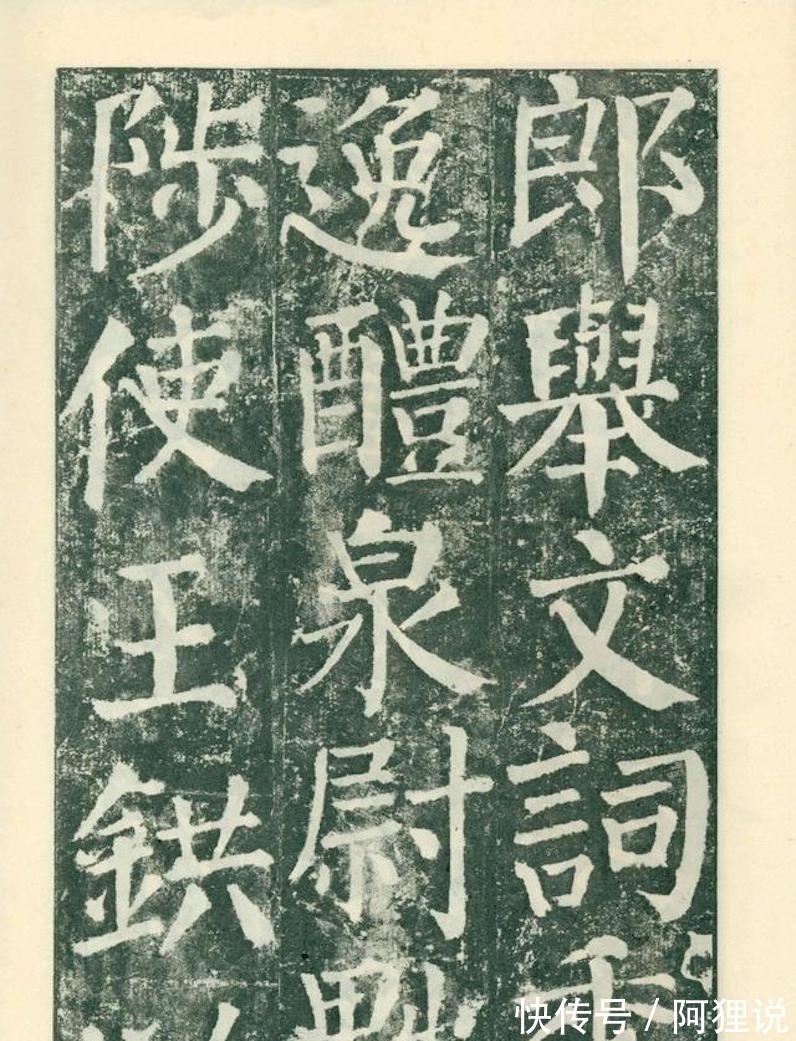 郎舉文詞秀
逸醴泉尉黜
陟使王鉷以
快传号/阿狸说